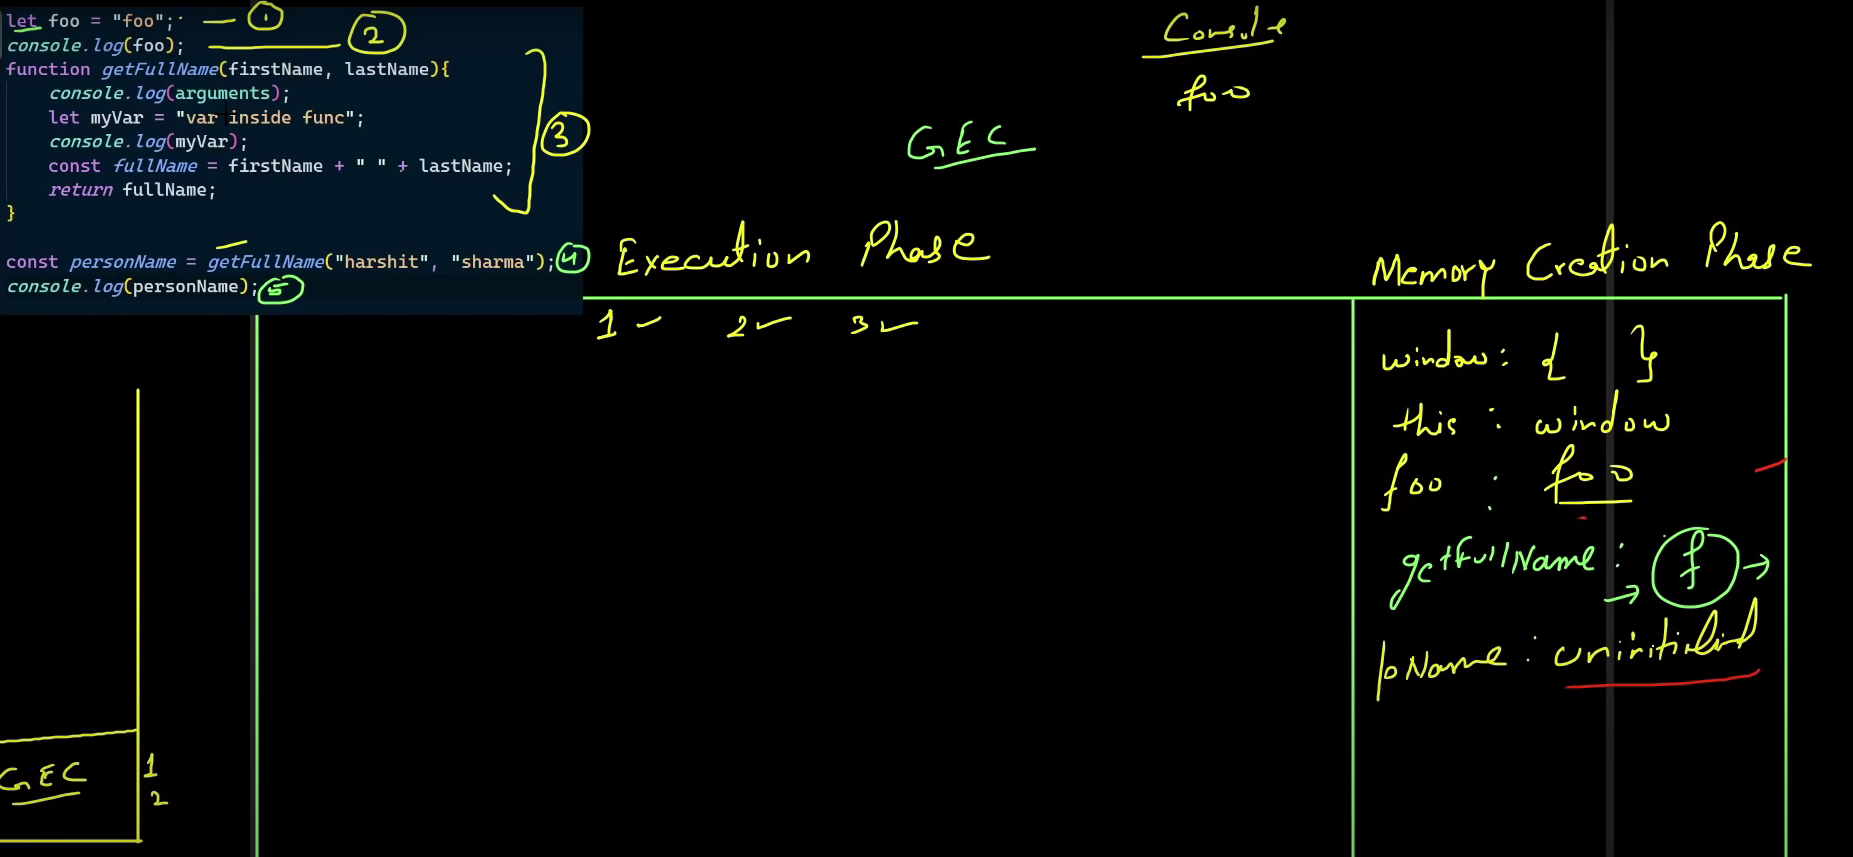 let foo = "foo"; 1
console.log(foo); 2
function getFullName(firstName, lastName){
console.log(arguments);
let myVar = "var inside func";
console.log(myVar); 3
const fullName = firstName + " " + lastName;
return fullName;
}
const personName = getFullName("harshit", "sharma"); 4
console.log(personName); 5
Console
foo
GEC
Execution Phase
Memory Creation Phase
1 2 3
window: { }
this : window
foo : foo
getFullName: f
pName: uninitialized
GEC 1
2